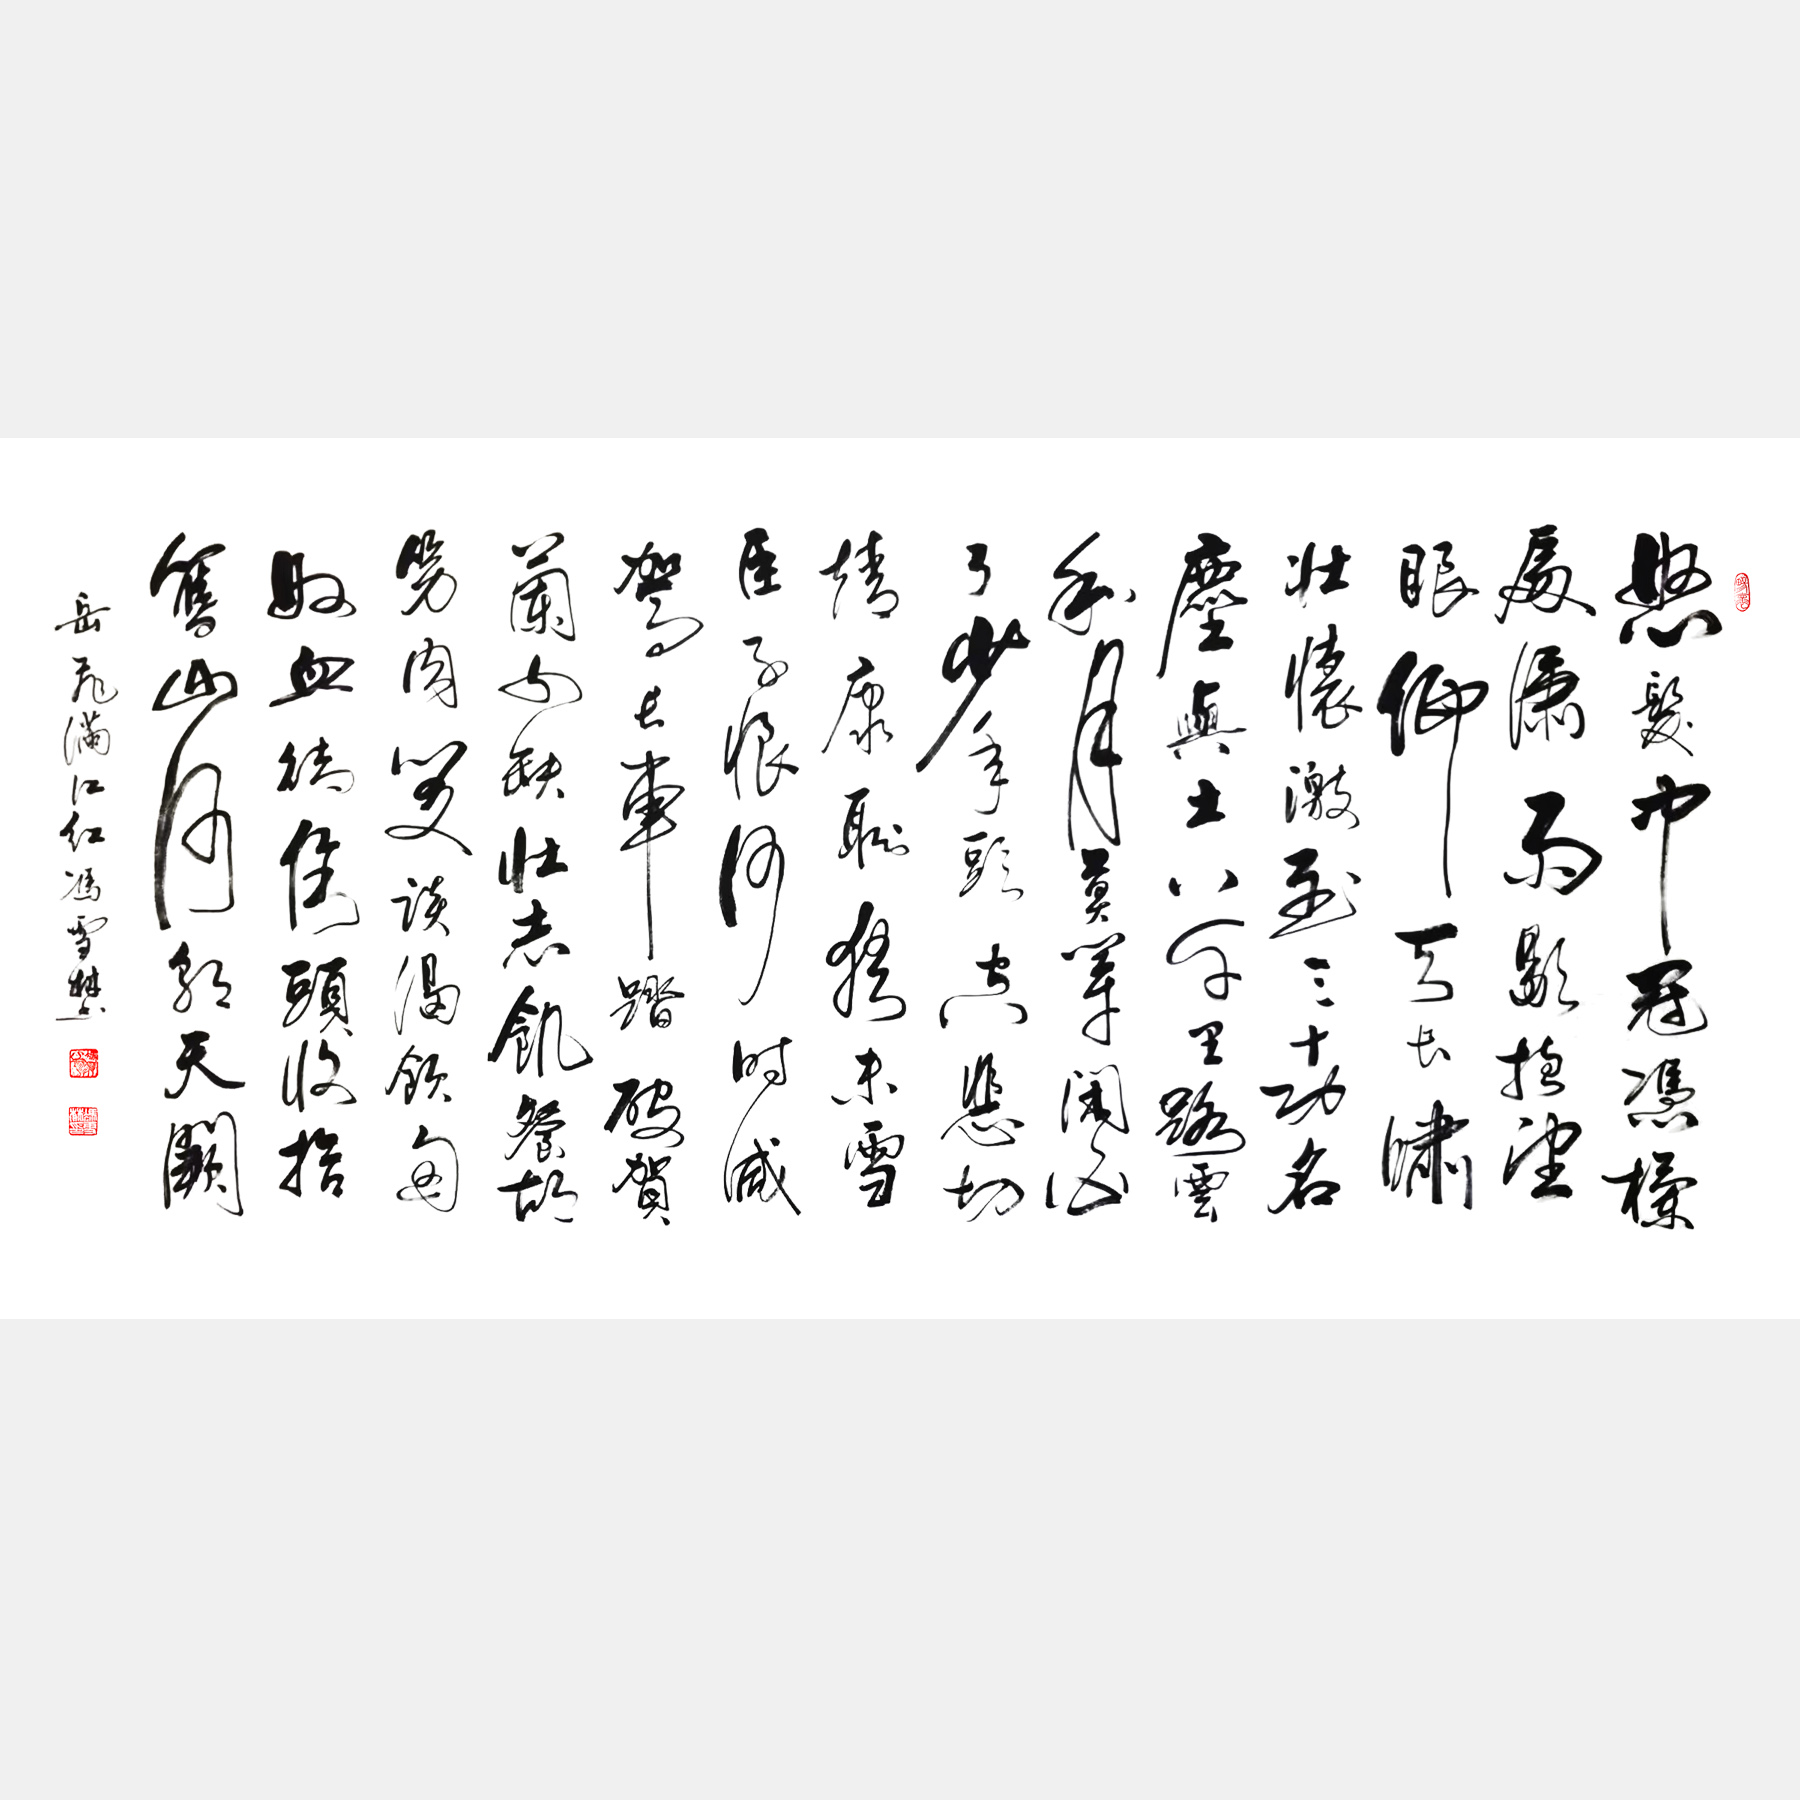 怒髮沖冠憑欄
處瀟雨歇抬望
眼仰天長嘯
壯懷激烈三十功名
塵與土八千里路雲
和月莫等閑白
了少年頭空悲切
靖康恥猶未雪
臣子恨何時滅
駕長車踏破賀
蘭山缺壯志飢餐胡
虜肉笑談渴飲匈
奴血待從頭收拾
舊山河朝天闕
岳飛滿江紅馮雪林書